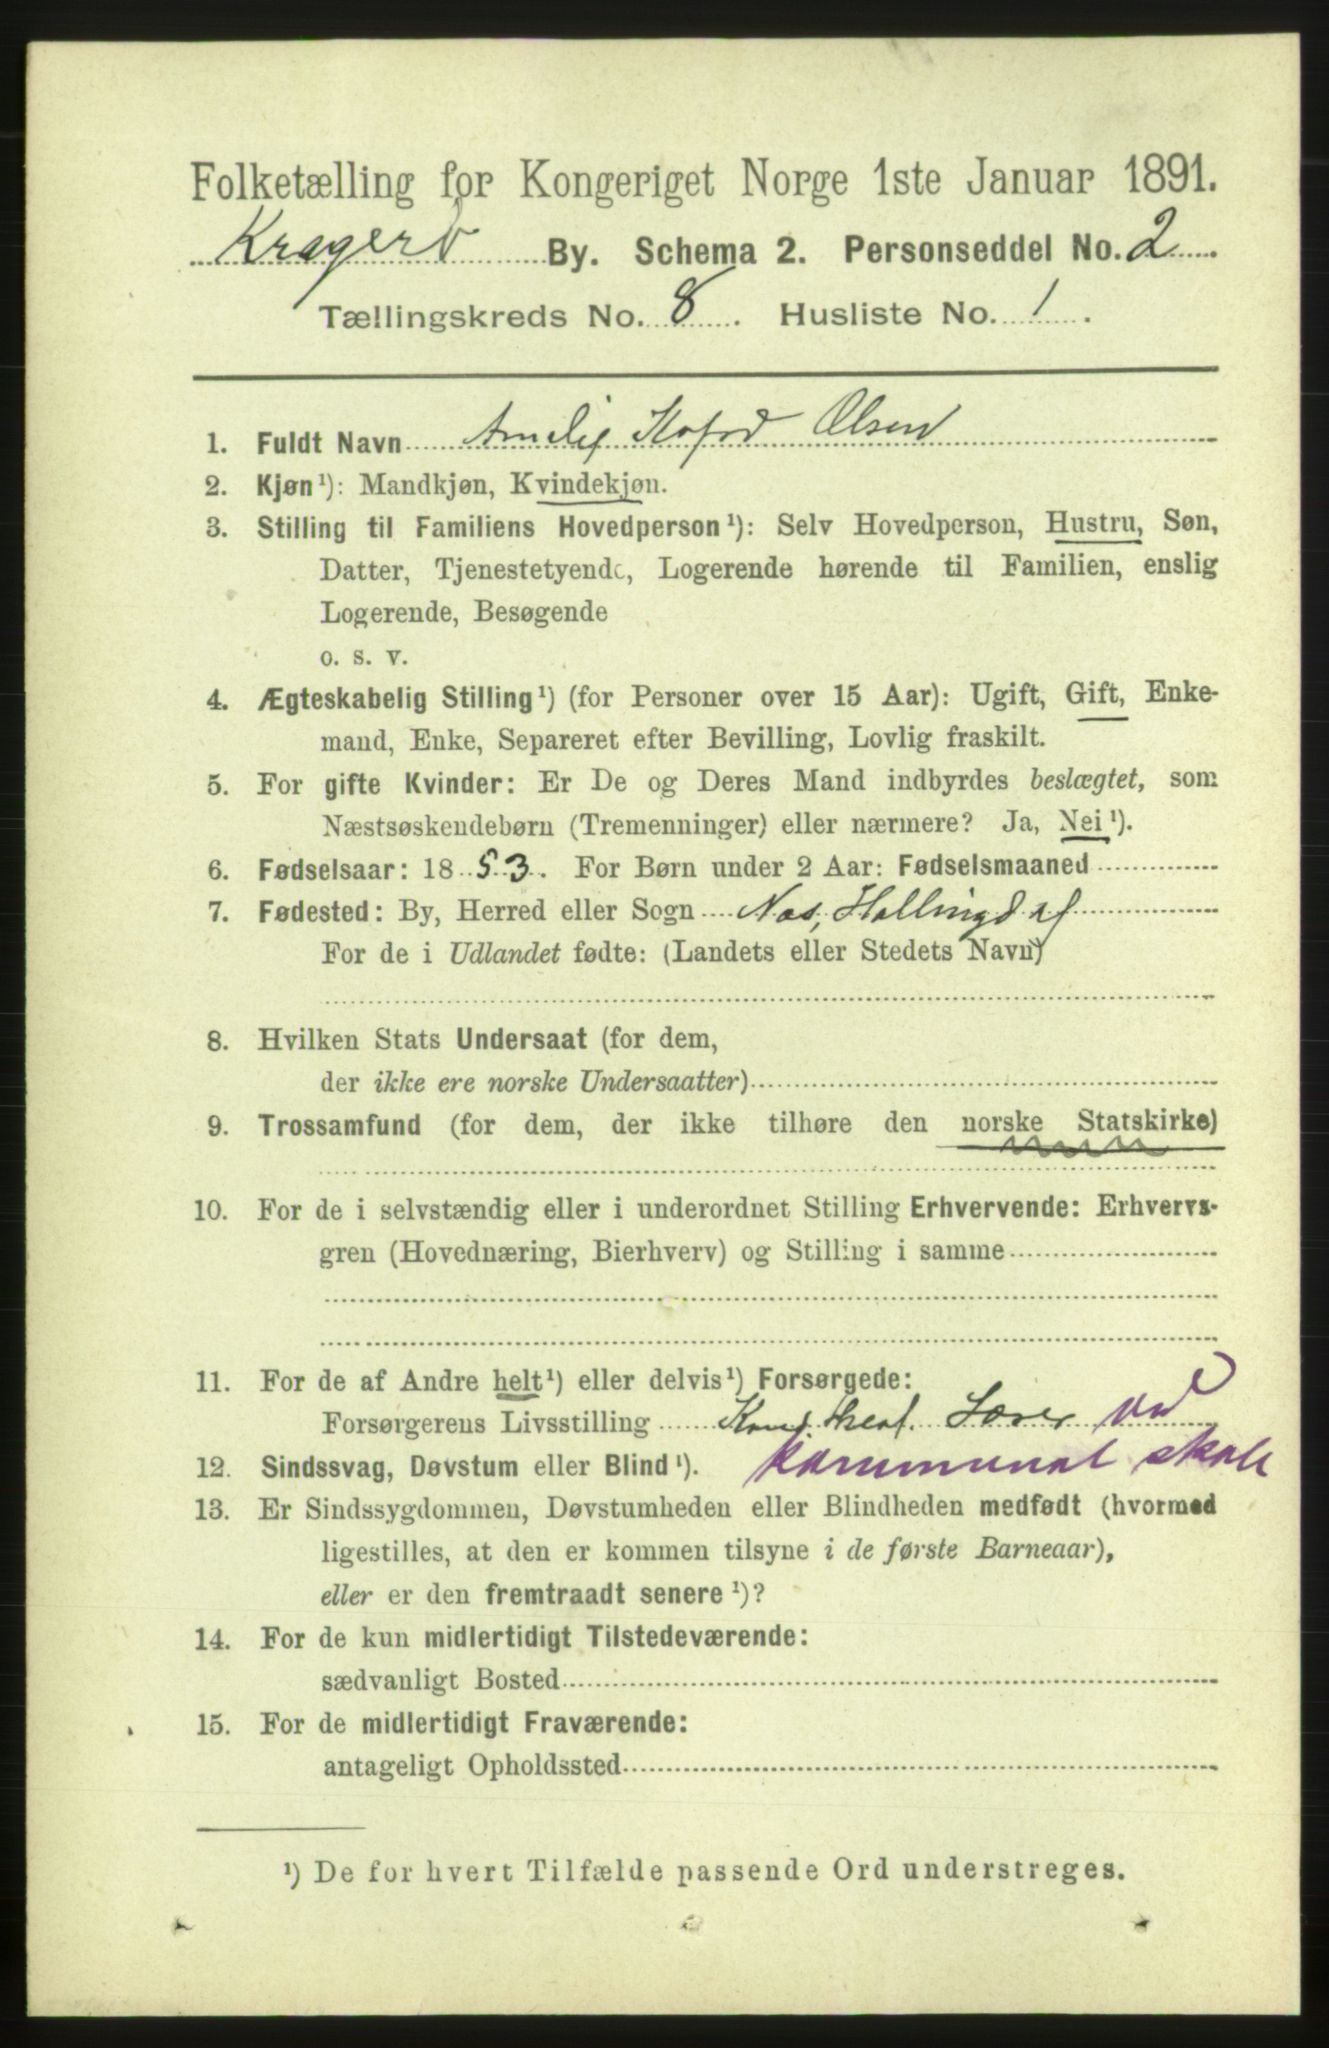 Folketælling for Kongeriget Norge 1ste Januar 1891.
Kragerø By. Schema 2. Personseddel No. 2.
Tællingskreds No. 8. Husliste No. 1.
1. Fuldt Navn Olsen
2. Kjøn¹): Mandkjøn, Kvindekjøn.
3. Stilling til Familiens Hovedperson¹): Selv Hovedperson, Hustru, Søn,
Datter, Tjenestetyende, Logerende hørende til Familien, enslig
Logerende, Besøgende
o. s. v.
4. Ægteskabelig Stilling¹) (for Personer over 15 Aar): Ugift, Gift, Enke-
mand, Enke, Separeret efter Bevilling, Lovlig fraskilt.
5. For gifte Kvinder: Er De og Deres Mand indbyrdes beslægtet, som
Næstsøskendebørn (Tremenninger) eller nærmere? Ja, Nei¹).
6. Fødselsaar: 1853. For Børn under 2 Aar: Fødselsmaaned
7. Fødested: By, Herred eller Sogn Nas, Hallingdal
For de i Udlandet fødte: (Landets eller Stedets Navn)
8. Hvilken Stats Undersaat (for dem,
der ikke ere norske Undersaatter)
9. Trossamfund (for dem, der ikke tilhøre den norske Statskirke)
10. For de i selvstændig eller i underordnet Stilling Erhvervende: Erhvervs-
gren (Hovednæring, Bierhverv) og Stilling i samme
11. For de af Andre helt¹) eller delvis¹) Forsørgede:
Forsørgerens Livsstilling Kand. theol. Lærer ved
kommunal skole
12. Sindssvag, Døvstum eller Blind¹).
13. Er Sindssygdommen, Døvstumheden eller Blindheden medfødt (hvormed
ligestilles, at den er kommen tilsyne i de første Barneaar),
eller er den fremtraadt senere¹)?
14. For de kun midlertidigt Tilstedeværende:
sædvanligt Bosted
15. For de midlertidigt Fraværende:
antageligt Opholdssted
¹) De for hvert Tilfælde passende Ord understreges.